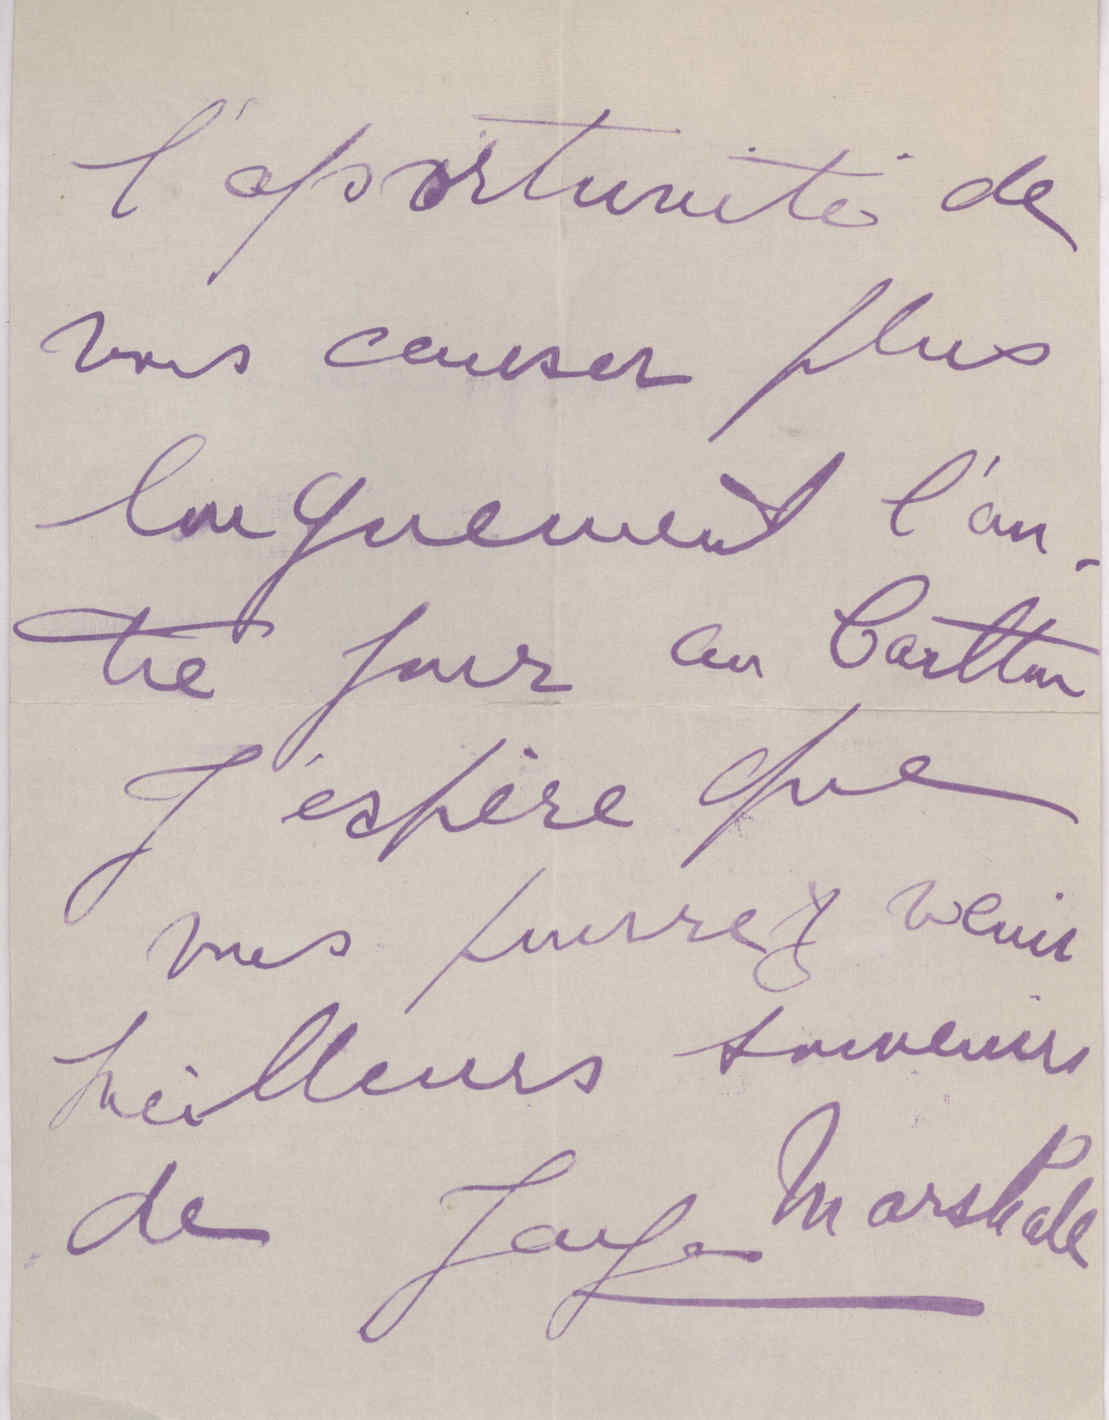 l'oportunité de
vous causer plus
longuement l'au-
tre jour au Carlton
J'espère que
vous pourrez venir
Meilleurs souvenirs
de Marshall